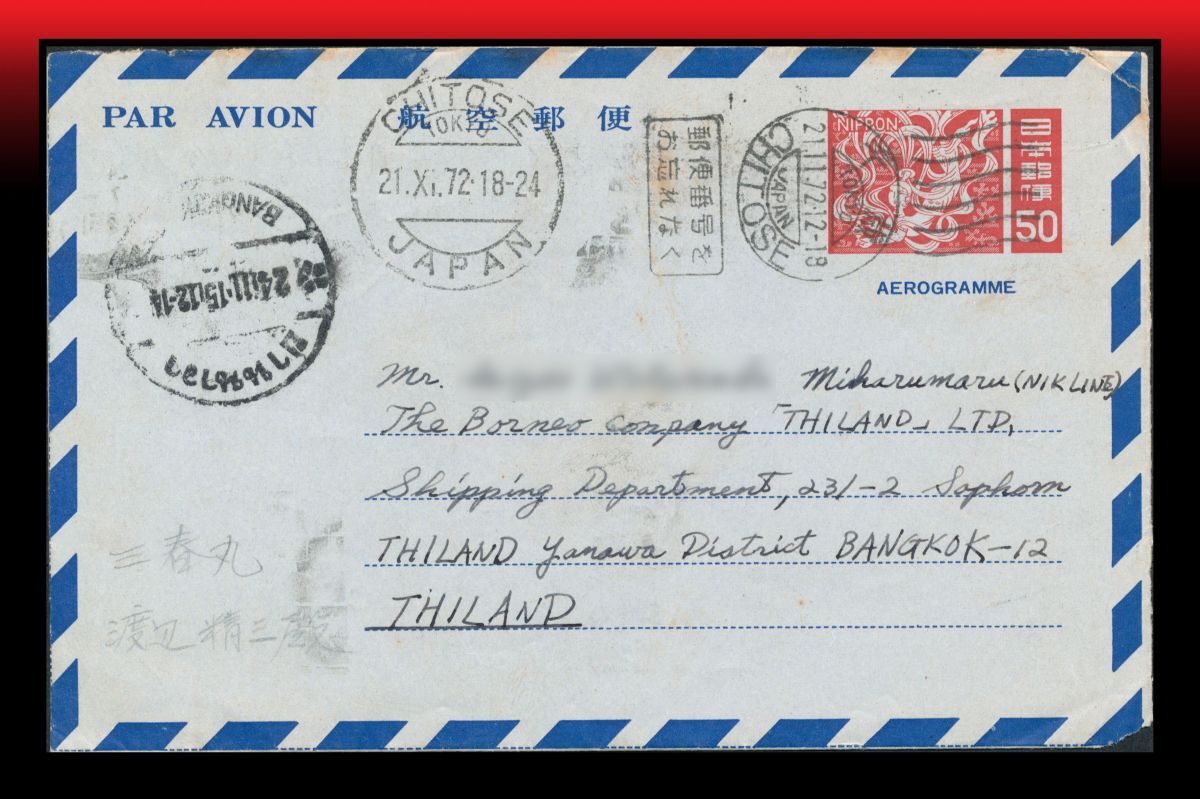 PAR AVION 航空郵便
CHITOSE
TOKYO
21.XI.72·18-24
JAPAN
郵便番号を
お忘れなく
CHITOSE
JAPAN
21.11.72 12-18
NIPPON
日本郵便
50
AEROGRAMME
BANGKOK
24.11.15 12-14
Mr. Miharumaru (NIK LINE)
The Borneo Company「THILAND」LTD,
Shipping Department, 231-2 Saphorn
THILAND Yanawa District BANGKOK-12
THILAND
三春丸
渡辺精三蔵